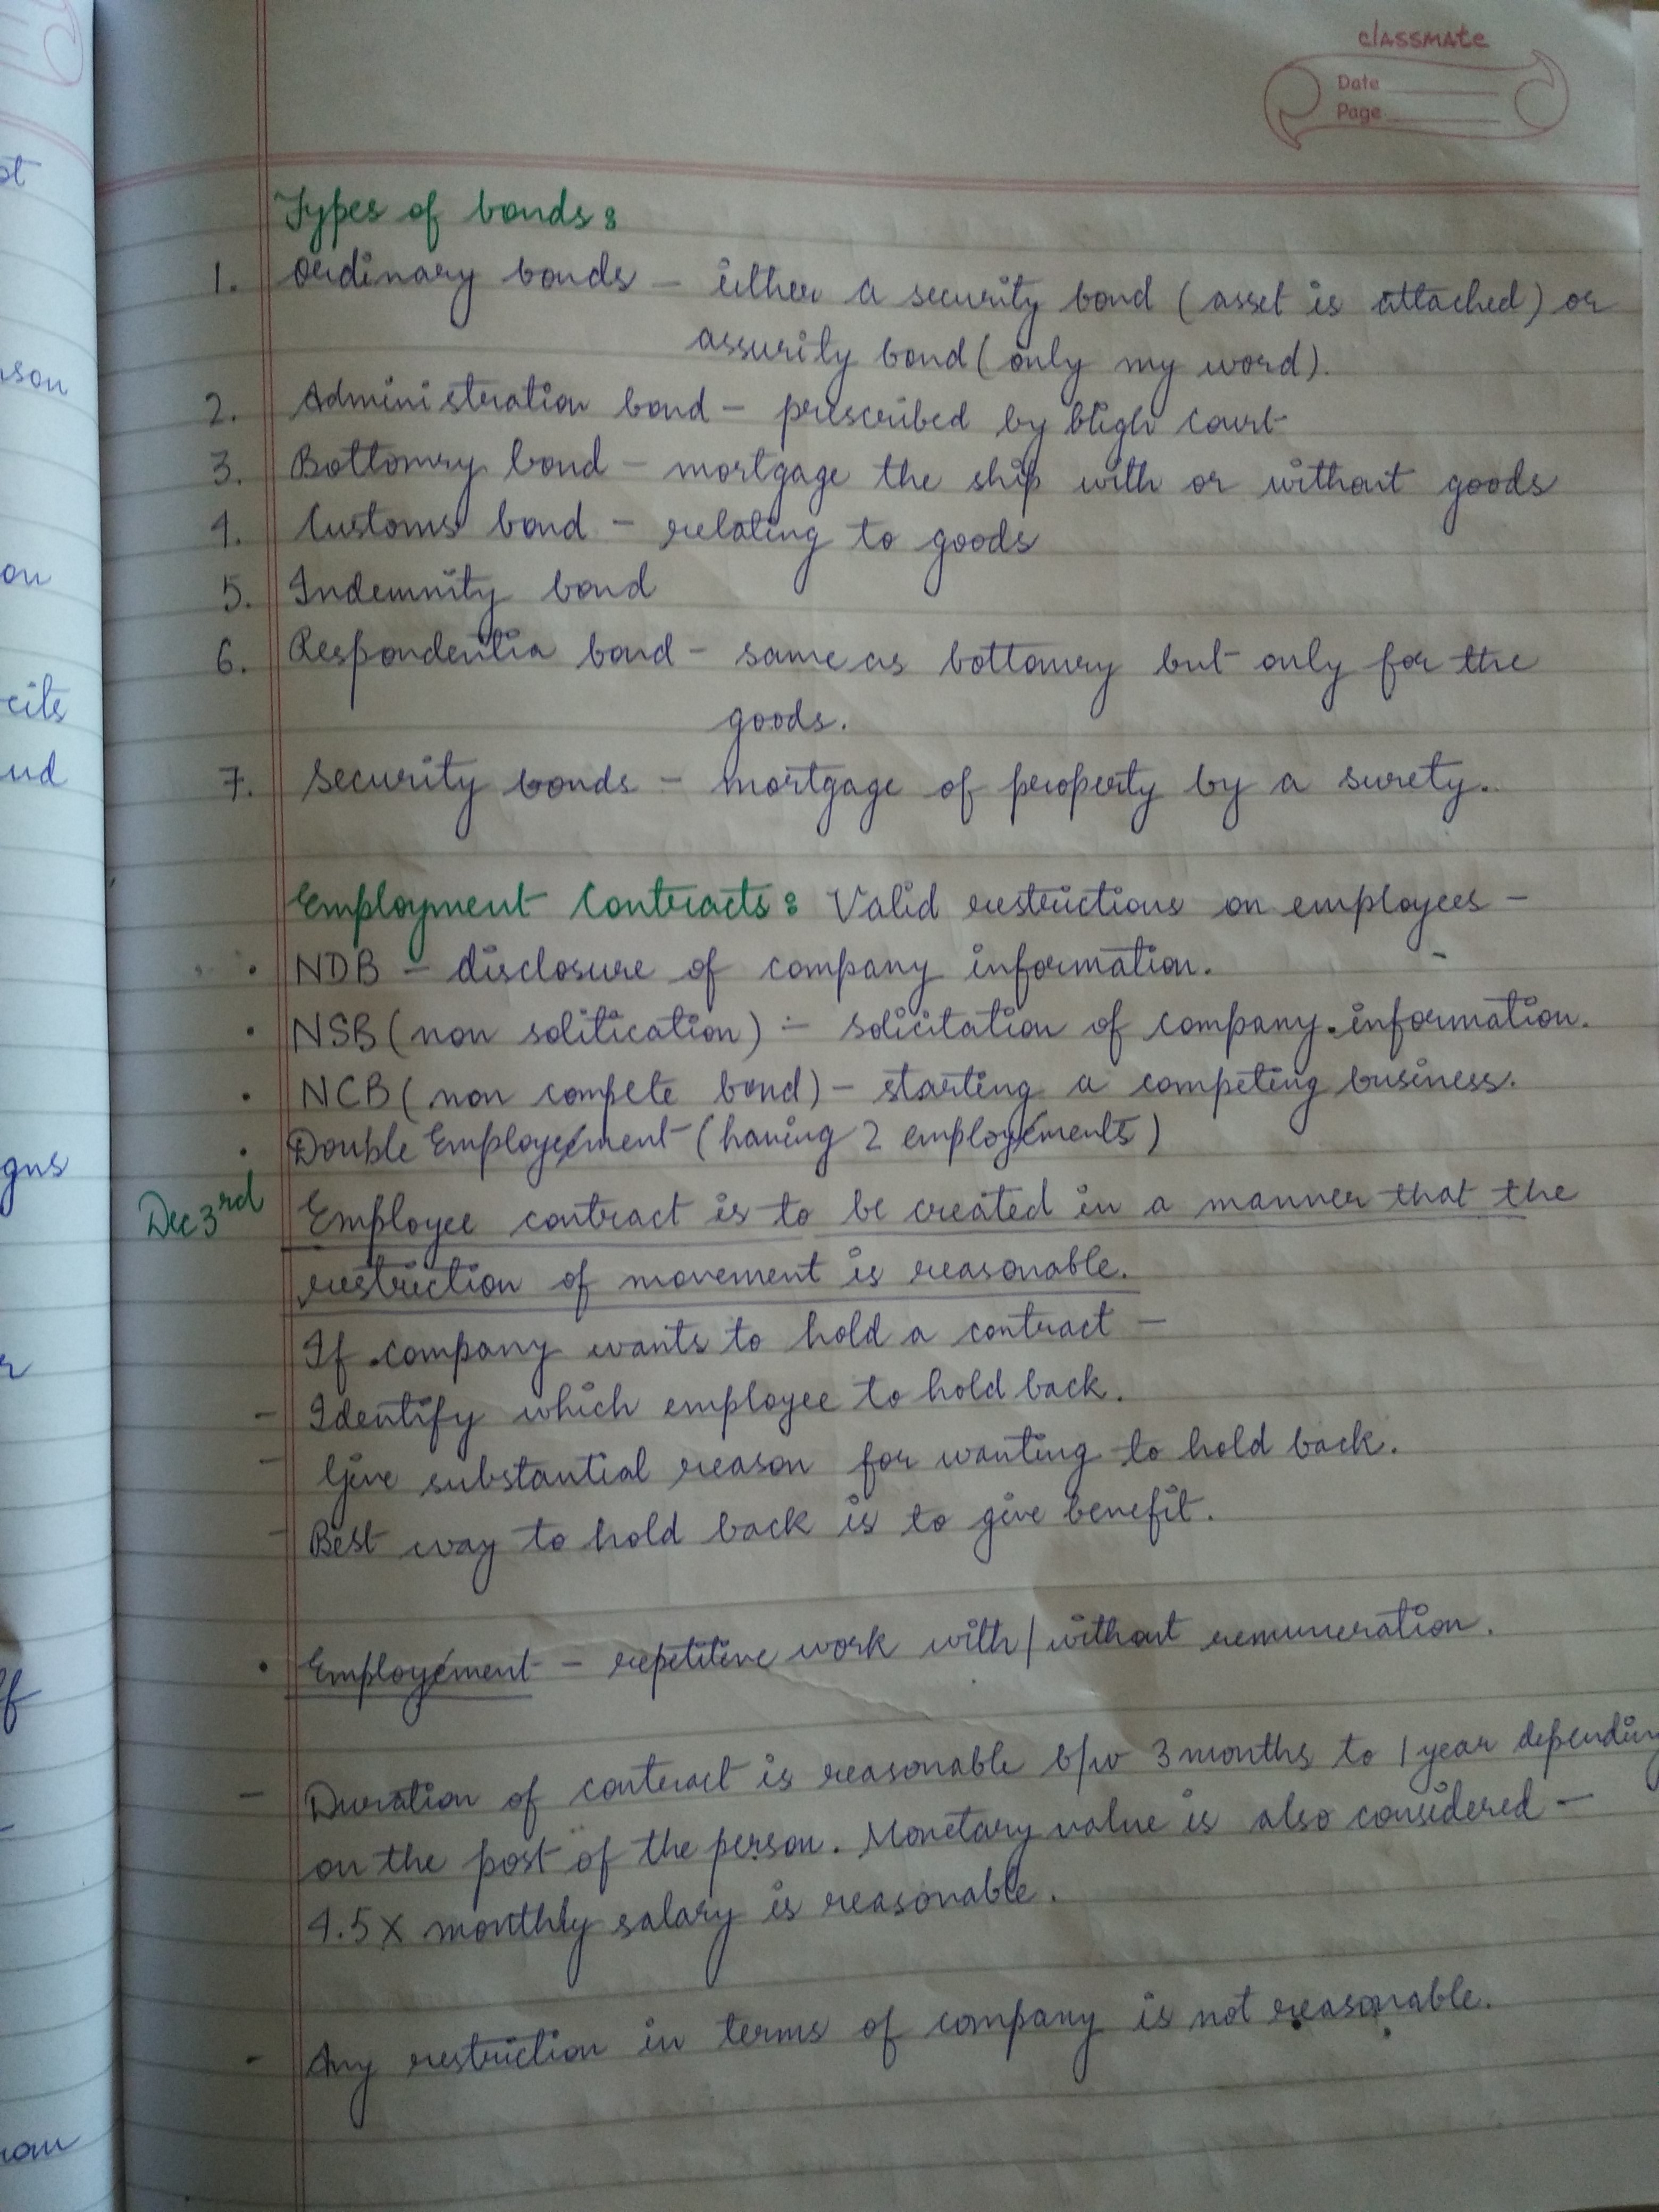 classmate
Date
Page
Types of bonds:
1. Ordinary bonds – either a security bond (asset is attached) or
assurity bond (only my word).
2. Administration bond – prescribed by High Court
3. Bottomry bond – mortgage the ship with or without goods
4. Customs bond – relating to goods
5. Indemnity bond
6. Respondentia bond – same as bottomry but only for the
goods.
7. Security bonds – mortgage of property by a surety.
Employment Contracts: Valid restrictions on employees –
• NDB – disclosure of company information.
• NSB (non solitication) – solicitation of company information.
• NCB (non compete bond) – starting a competing business.
• Double Employment (having 2 employments)
Dec 3rd Employee contract is to be created in a manner that the
restriction of movement is reasonable.
If company wants to hold a contract –
– Identify which employee to hold back.
– Give substantial reason for wanting to hold back.
– Best way to hold back is to give benefit.
• Employment – repetitive work with/without remuneration.
– Duration of contract is reasonable b/w 3 months to 1 year depending
on the post of the person. Monetary value is also considered –
4.5x monthly salary is reasonable.
– Any restriction in terms of company is not reasonable.
st
son
on
cits
ud
gns
r
f